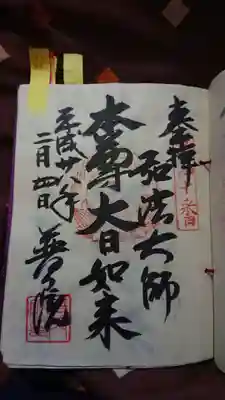 奉拝
弘法大師
本尊大日如来
平成廿八年
二月四日